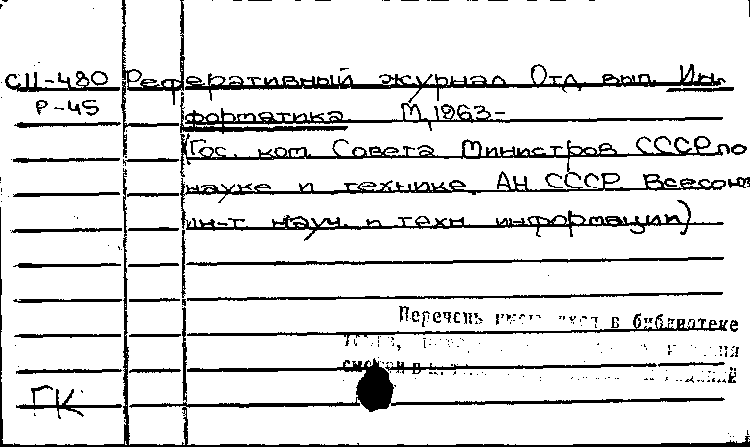 С11-480 Реферативный журнал Отд. вып. Ин-
Р-45 форматика М., 1963-
(Гос. ком. Совета Министров СССР по
науке и технике АН СССР Всесоюз
ин-т науч. и техн информации)
Перечень в библиотеке
смотри в
ГК